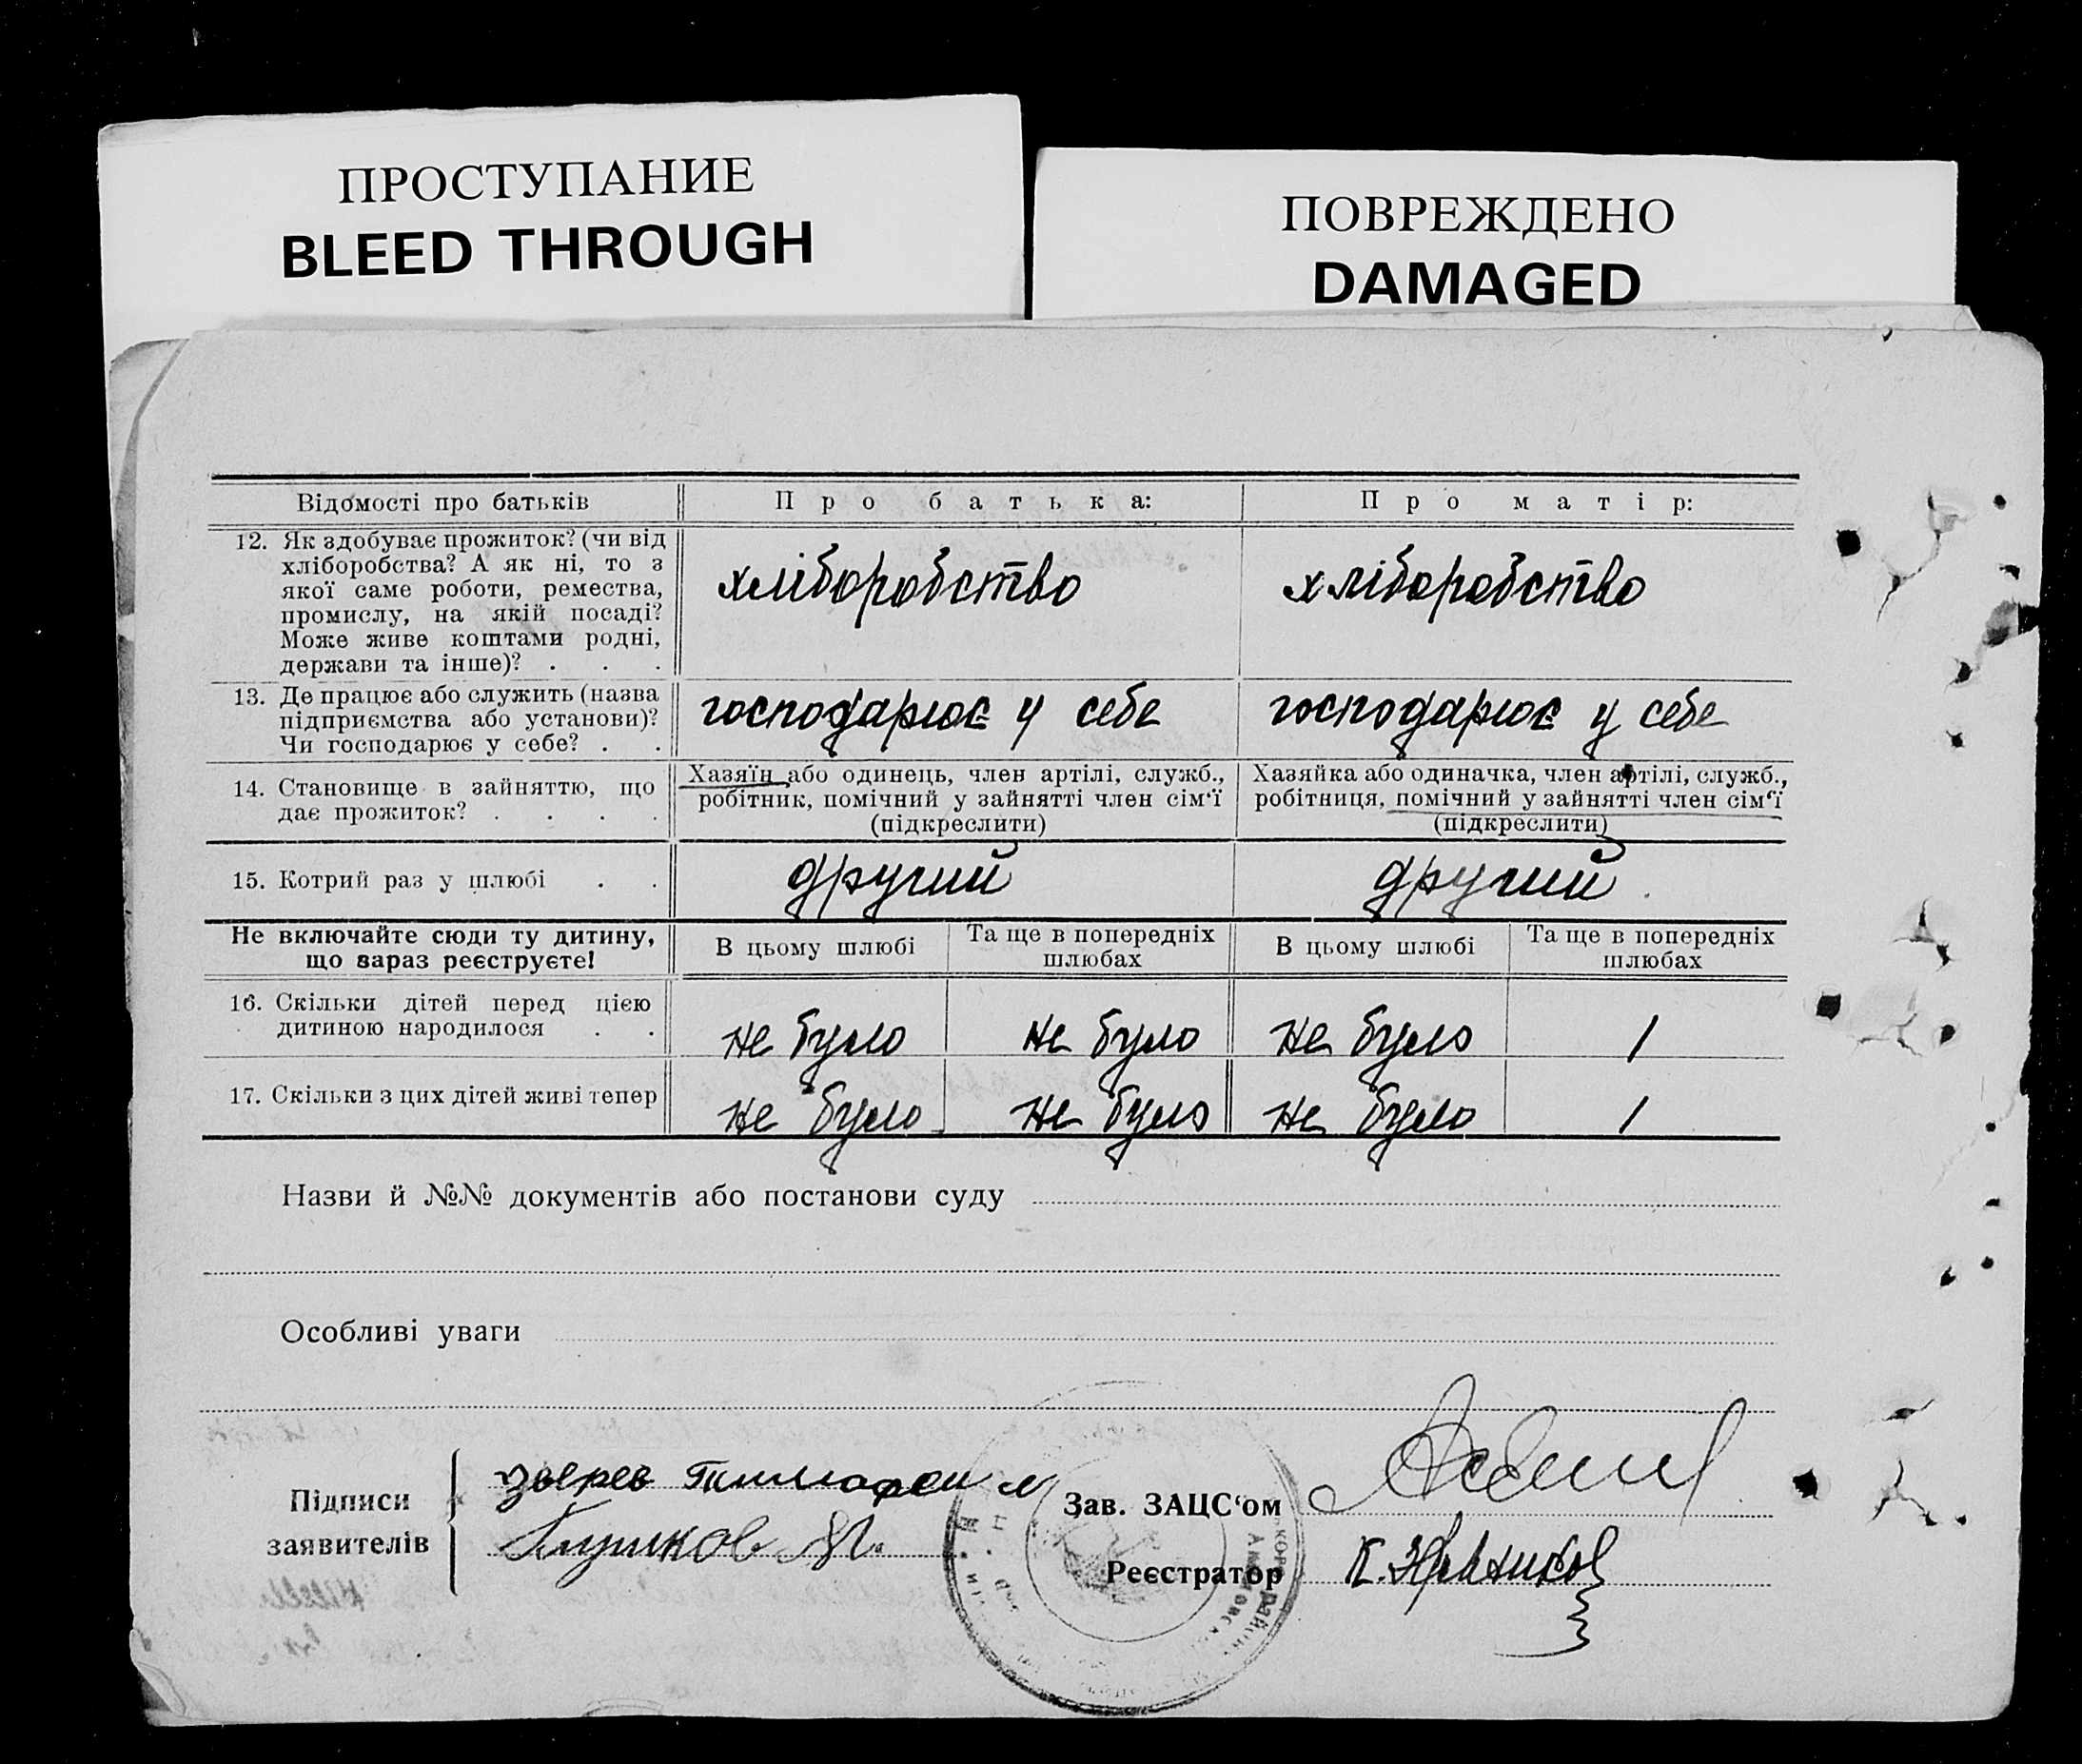 ПРОСТУПАНИЕ
BLEED THROUGH
ПОВРЕЖДЕНО
DAMAGED
Відомості про батьків
Про батька:
Про матір:
12. Як здобуває прожиток? (чи від
хліборобства? А як ні, то з
якої саме роботи, ремества,
промислу, на якій посаді?
Може живе коштами родні,
держави та інше)? . . .
хліборобство
хліборобство
13. Де працює або служить (назва
підприємства або установи)?
Чи господарює у себе? . .
господарює у себе
господарює у себе
14. Становище в зайняттю, що
дає прожиток? . . . .
Хазяїн або одинець, член артілі, служб.,
робітник, помічний у зайнятті член сім'ї
(підкреслити)
Хазяйка або одиначка, член артілі, служб.,
робітниця, помічний у зайнятті член сім'ї
(підкреслити)
15. Котрий раз у шлюбі . .
другий
другий
Не включайте сюди ту дитину,
що зараз реєструєте!
В цьому шлюбі
Та ще в попередніх
шлюбах
В цьому шлюбі
Та ще в попередніх
шлюбах
16. Скільки дітей перед цією
дитиною народилося . .
не було
не було
не було
1
17. Скільки з цих дітей живі тепер
не було
не було
не було
1
Назви й №№ документів або постанови суду
Особливі уваги
Підписи
заявителів
Зверев
Зав. ЗАЦС'ом
Реєстратор